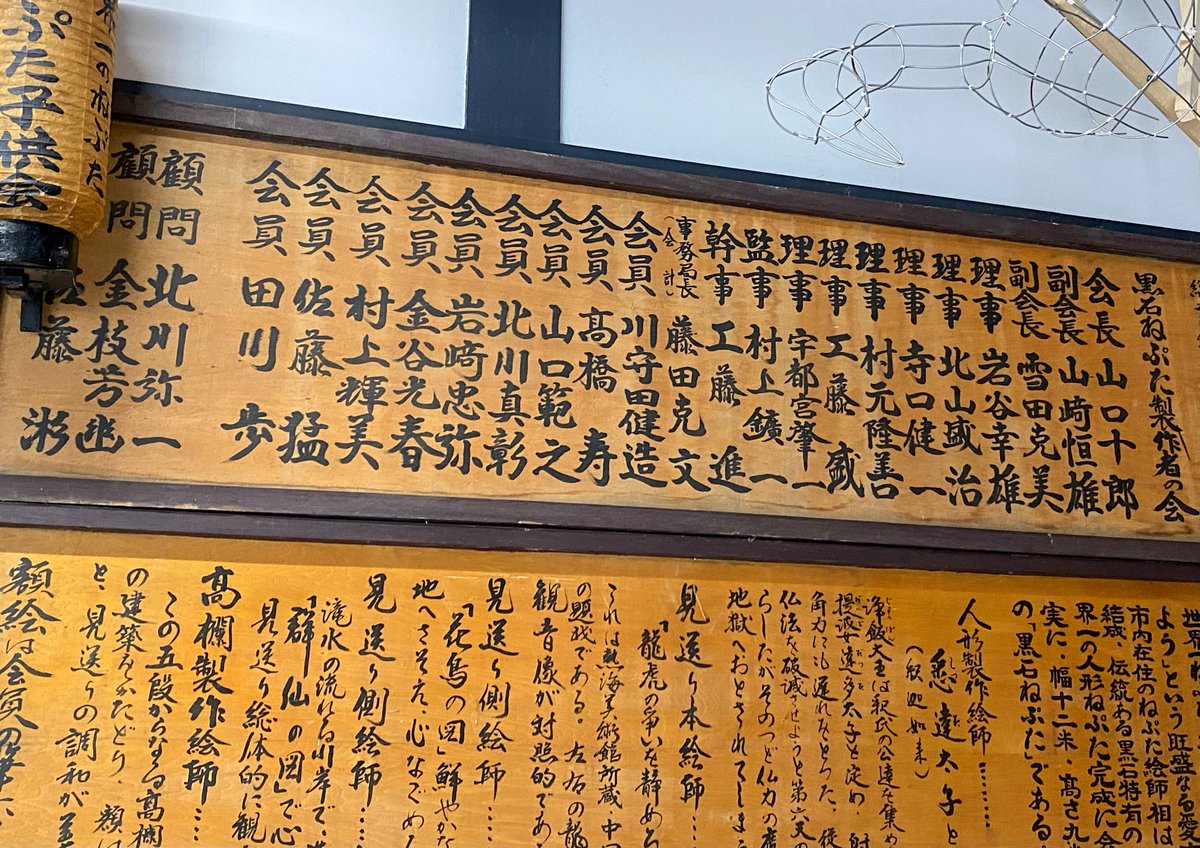 黒石ねぷた製作者の会
会長 山口十郎
副会長 山崎恒雄
副会長 雪田克美
理事 岩谷幸雄
理事 北山盛治
理事 寺口健一
理事 村元隆善
理事 工藤盛
理事 宇都宮肇一
監事 村上鑛一
幹事 工藤進
事務局長(会計) 藤田克文
会員 川守田健造
会員 高橋寿
会員 山口範之
会員 北川真彰
会員 岩崎忠弥
会員 金谷光春
会員 村上輝美
会員 佐藤猛
会員 田川歩
顧問 北川弥一
顧問 金枝芳幽
佐藤
一のねぷた
ぷた子供会
よう」という旺盛なる愛
市内在住のねぷた絵師相は
結成、伝統ある黒石特有の
界一の人形ねぷた完成に会
実に、幅十二米・高さ九
の「黒石ねぷた」である
人形製作絵師……
悉達太子と
(釈迦如来)
浄飯大王は釈氏の公達を集め
提婆達多太子と定め、射
角力にも遅れをとった、使
仏法を破滅させようと第六天の
らしたがそのつど仏力の
地獄へおとされてしま
見送り本絵師…
「龍虎の争いを静める
これは熱海美術館所蔵、中国
の題氏である。左右の龍
観音像が対照的であ
見送り側絵師…
「花鳥の図」鮮やかな
地へさそた、心なごめ
見送り側絵師…
滝水の流れる川岸で、
「群仙の図」で心
見送り総体的に観
高欄製作絵師…
この五段からなる高欄
の建築をかたどり、顔は
と、見送りの調和が美
額絵は会員の筆に